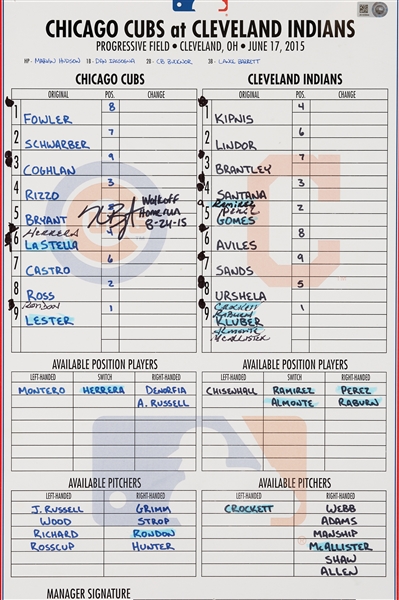 CHICAGO CUBS at CLEVELAND INDIANS
PROGRESSIVE FIELD • CLEVELAND, OH • JUNE 17, 2015
HP - MARVIN HUDSON 1B - DAN IASSOGNA 2B - CB BUCKNOR 3B - LANCE BARRETT
CHICAGO CUBS
ORIGINAL POS. CHANGE
1 FOWLER 8
2 SCHWARBER 7
3 COGHLAN 9
4 RIZZO 3
5 BRYANT
Walkoff
Homerun
8-24-15
HERRERA
6 LA STELLA 4
7 CASTRO 6
8 ROSS 2
RONDON
9 LESTER 1
AVAILABLE POSITION PLAYERS
LEFT-HANDED SWITCH RIGHT-HANDED
MONTERO HERRERA DENORFIA
A. RUSSELL
AVAILABLE PITCHERS
LEFT-HANDED RIGHT-HANDED
J. RUSSELL GRIMM
WOOD STROP
RICHARD RONDON
ROSSCUP HUNTER
CLEVELAND INDIANS
ORIGINAL POS. CHANGE
1 KIPNIS 4
2 LINDOR 6
3 BRANTLEY 7
4 SANTANA 3
RAMIREZ
PEREZ
5 GOMES 2
6 AVILES 8
7 SANDS 9
8 URSHELA 5
CROCKETT
RABURN
9 KLUBER 1
ALMONTE
MCALLISTER
AVAILABLE POSITION PLAYERS
LEFT-HANDED SWITCH RIGHT-HANDED
CHISENHALL RAMIREZ PEREZ
ALMONTE RABURN
AVAILABLE PITCHERS
LEFT-HANDED RIGHT-HANDED
CROCKETT WEBB
ADAMS
MANSHIP
MCALLISTER
SHAW
ALLEN
MANAGER SIGNATURE